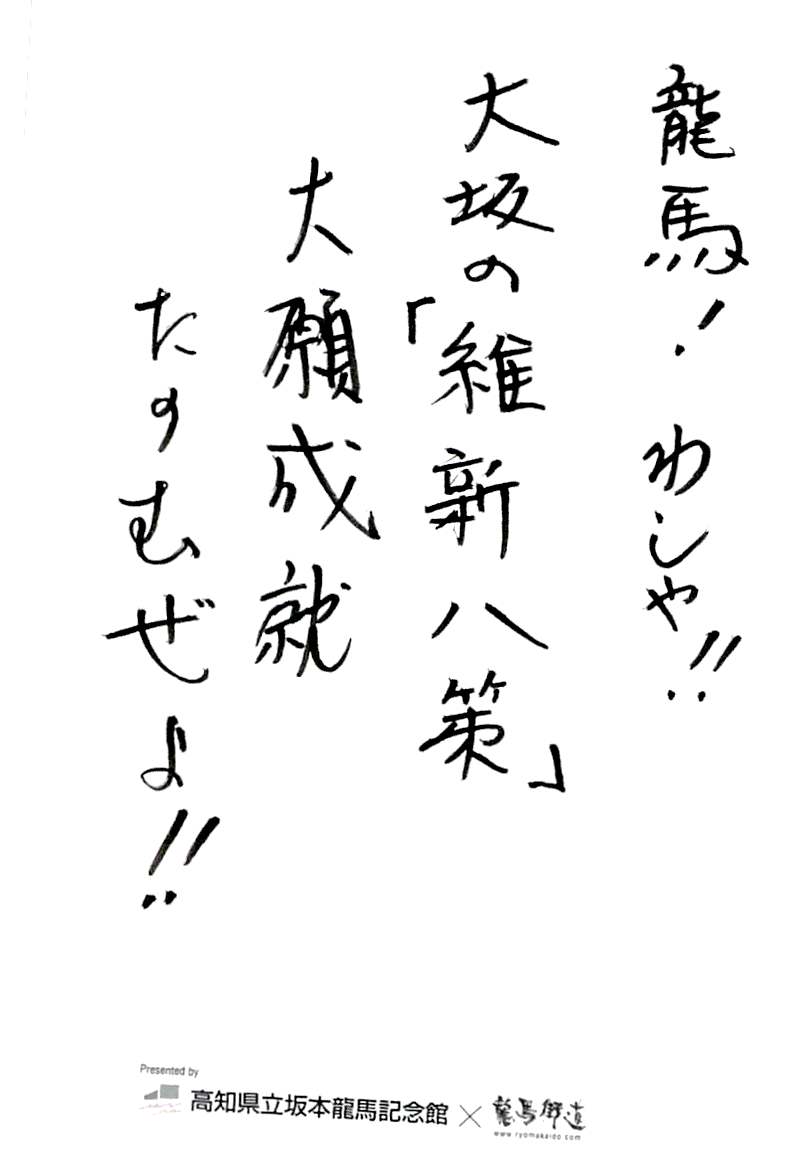 龍馬！わしゃ!!
大坂の「維新八策」
大願成就
たのむぜよ!!
Presented by
高知県立坂本龍馬記念館×龍馬街道
www.ryomakaido.com